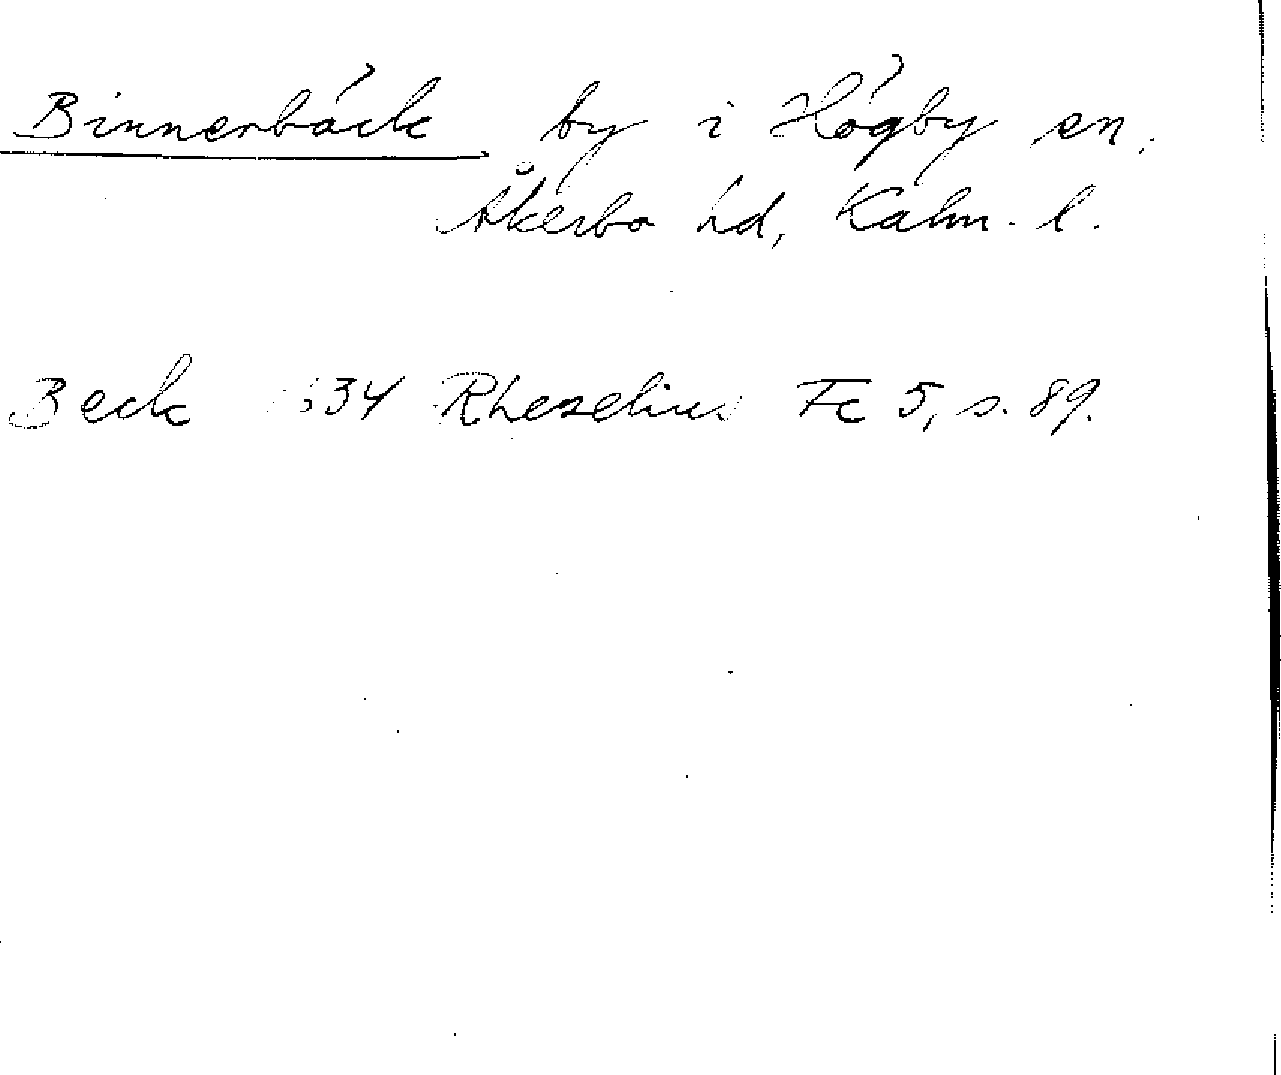 Binnerbäck by i Högby sn.
Åkerbo hd, Kalm. l.
Beck 1634 Rhezelius Fc 5, s. 89.